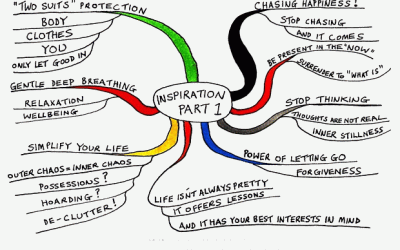 INSPIRATION
PART 1
CHASING HAPPINESS!
STOP CHASING
AND IT COMES
BE PRESENT IN THE "NOW"
SURRENDER TO "WHAT IS"
STOP THINKING
THOUGHTS ARE NOT REAL
INNER STILLNESS
POWER OF LETTING GO
FORGIVENESS
LIFE ISN'T ALWAYS PRETTY
IT OFFERS LESSONS
AND IT HAS YOUR BEST INTERESTS IN MIND
SIMPLIFY YOUR LIFE
OUTER CHAOS = INNER CHAOS
POSSESSIONS?
HOARDING?
DE-CLUTTER!
GENTLE DEEP BREATHING
RELAXATION
WELLBEING
"TWO SUITS" PROTECTION
BODY
CLOTHES
YOU
ONLY LET GOOD IN